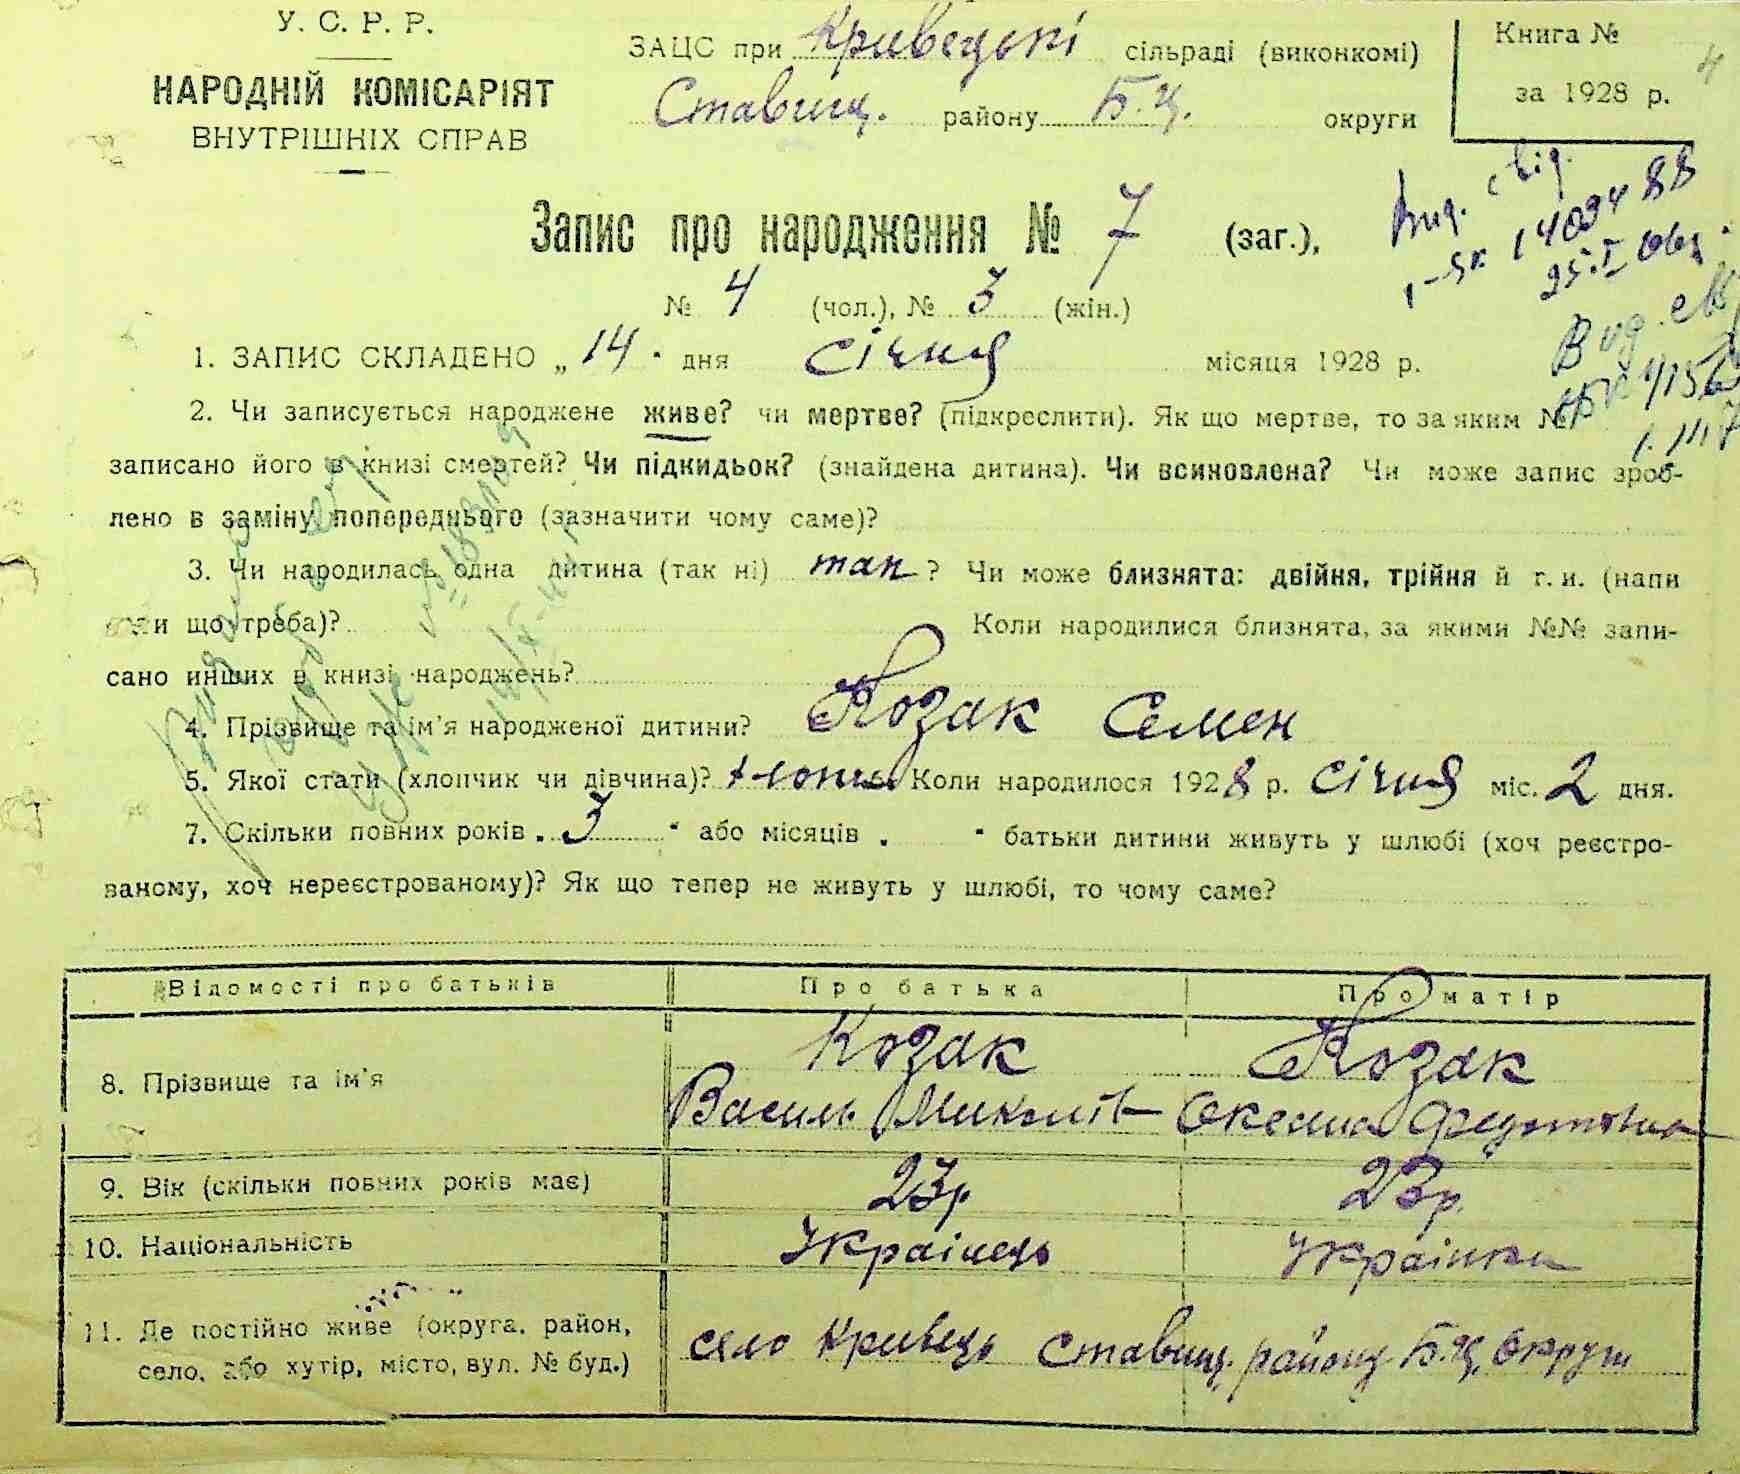 У. С. Р. Р.
НАРОДНІЙ КОМІСАРІЯТ
ВНУТРІШНІХ СПРАВ
ЗАЦС при Кривецькі сільраді (виконкомі)
Ставищ. району Б.Ц. округи
Книга № 4
за 1928 р.
Запис про народження № 7 (заг.),
№ 4 (чол.), № 3 (жін.)
1. ЗАПИС СКЛАДЕНО „14" дня січня місяця 1928 р.
2. Чи записується народжене живе? чи мертве? (підкреслити). Як що мертве, то за яким №
записано його в книзі смертей? Чи підкидьок? (знайдена дитина). Чи всиновлена? Чи може запис зроб-
лено в заміну попереднього (зазначити чому саме)?
3. Чи народилась одна дитина (так ні) так ? Чи може близнята: двійня, трійня й г. и. (напи
и що треба)? Коли народилися близнята, за якими №№ запи-
сано инших в книзі народжень?
4. Прізвище та ім'я народженої дитини? Козак Семен
5. Якої стати (хлопчик чи дівчина)? хлопч Коли народилося 1928 р. січня міс. 2 дня.
7. Скільки повних років „ 3 " або місяців „ " батьки дитини живуть у шлюбі (хоч реєстро-
ваному, хоч нереєстрованому)? Як що тепер не живуть у шлюбі, то чому саме?
Відомості про батьків Про батька Про матір
8. Прізвище та ім'я Козак Василь Миколів Козак Оксенка Федотовна
9. Вік (скільки повних років має) 23р. 23р.
10. Національність Українець Українка
11. Де постійно живе (округа, район,
село, або хутір, місто, вул. № буд.) село Кривець Ставищ. району Б.Ц. округи